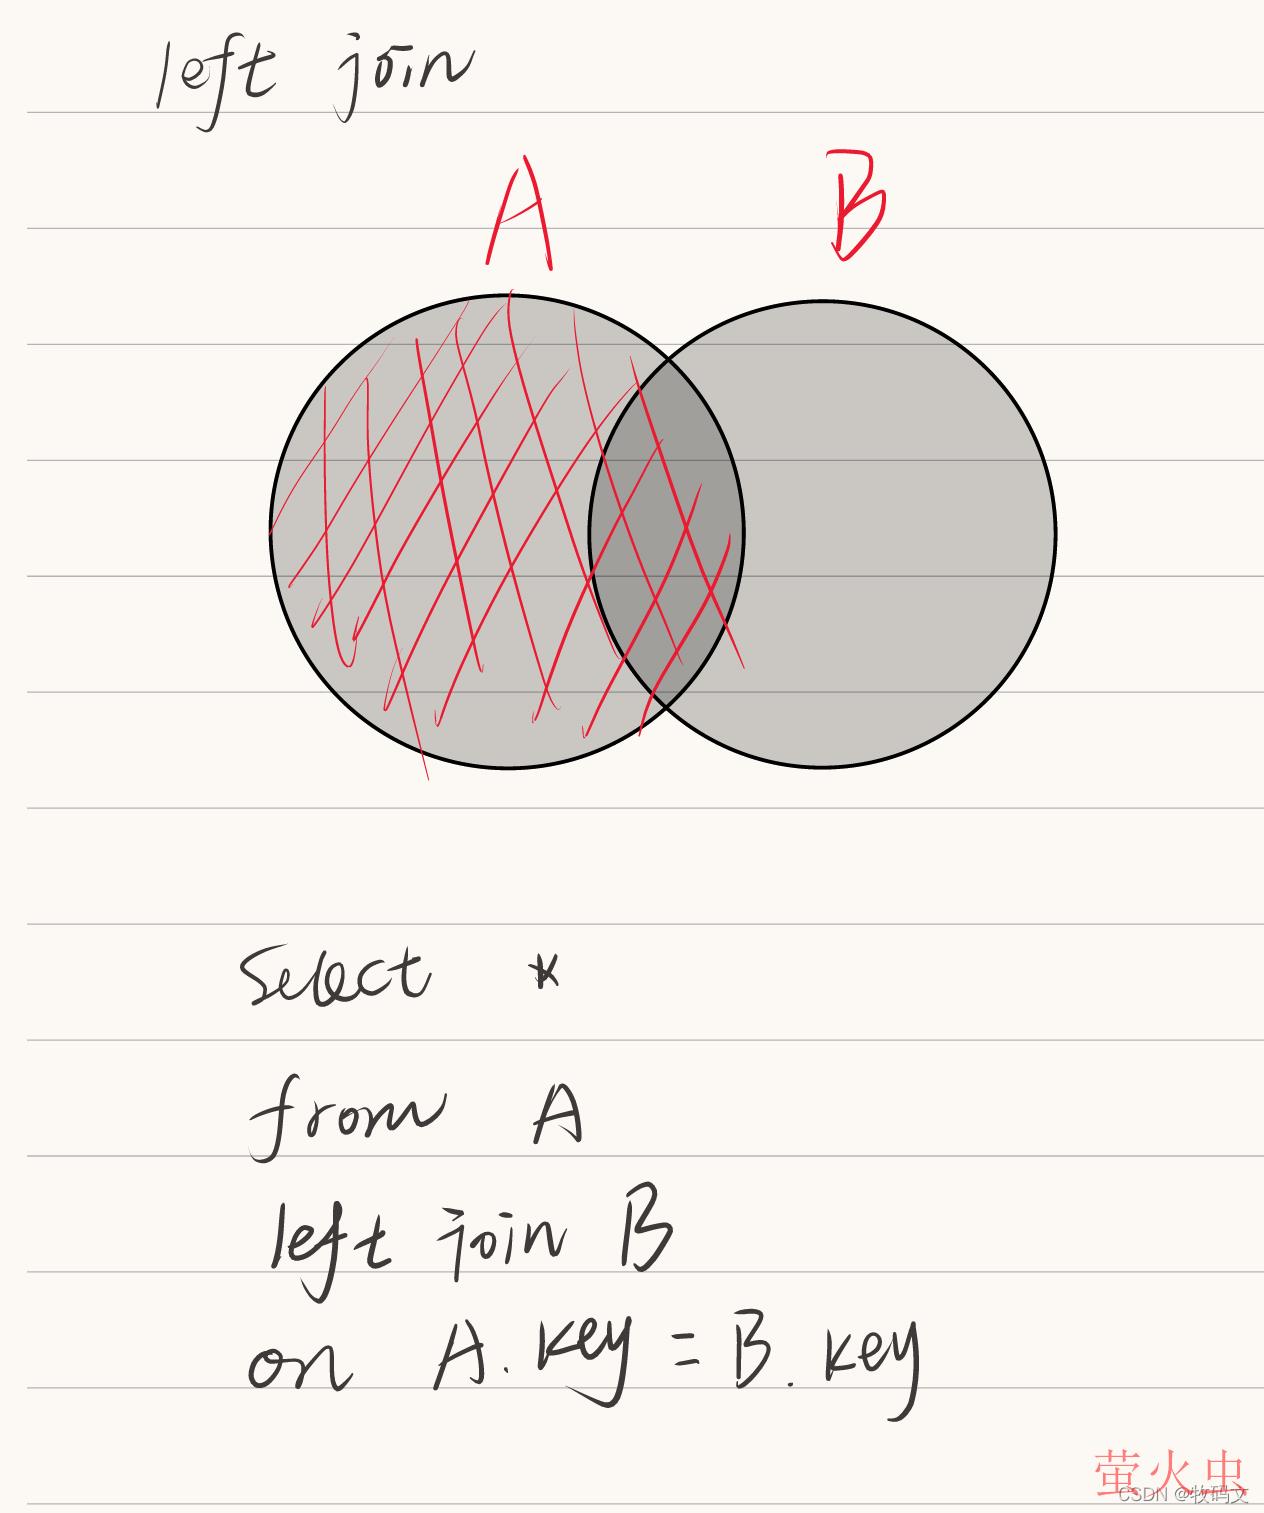 left join
A B
Select *
from A
left join B
on A.key = B.key
萤火虫
CSDN @牧码文